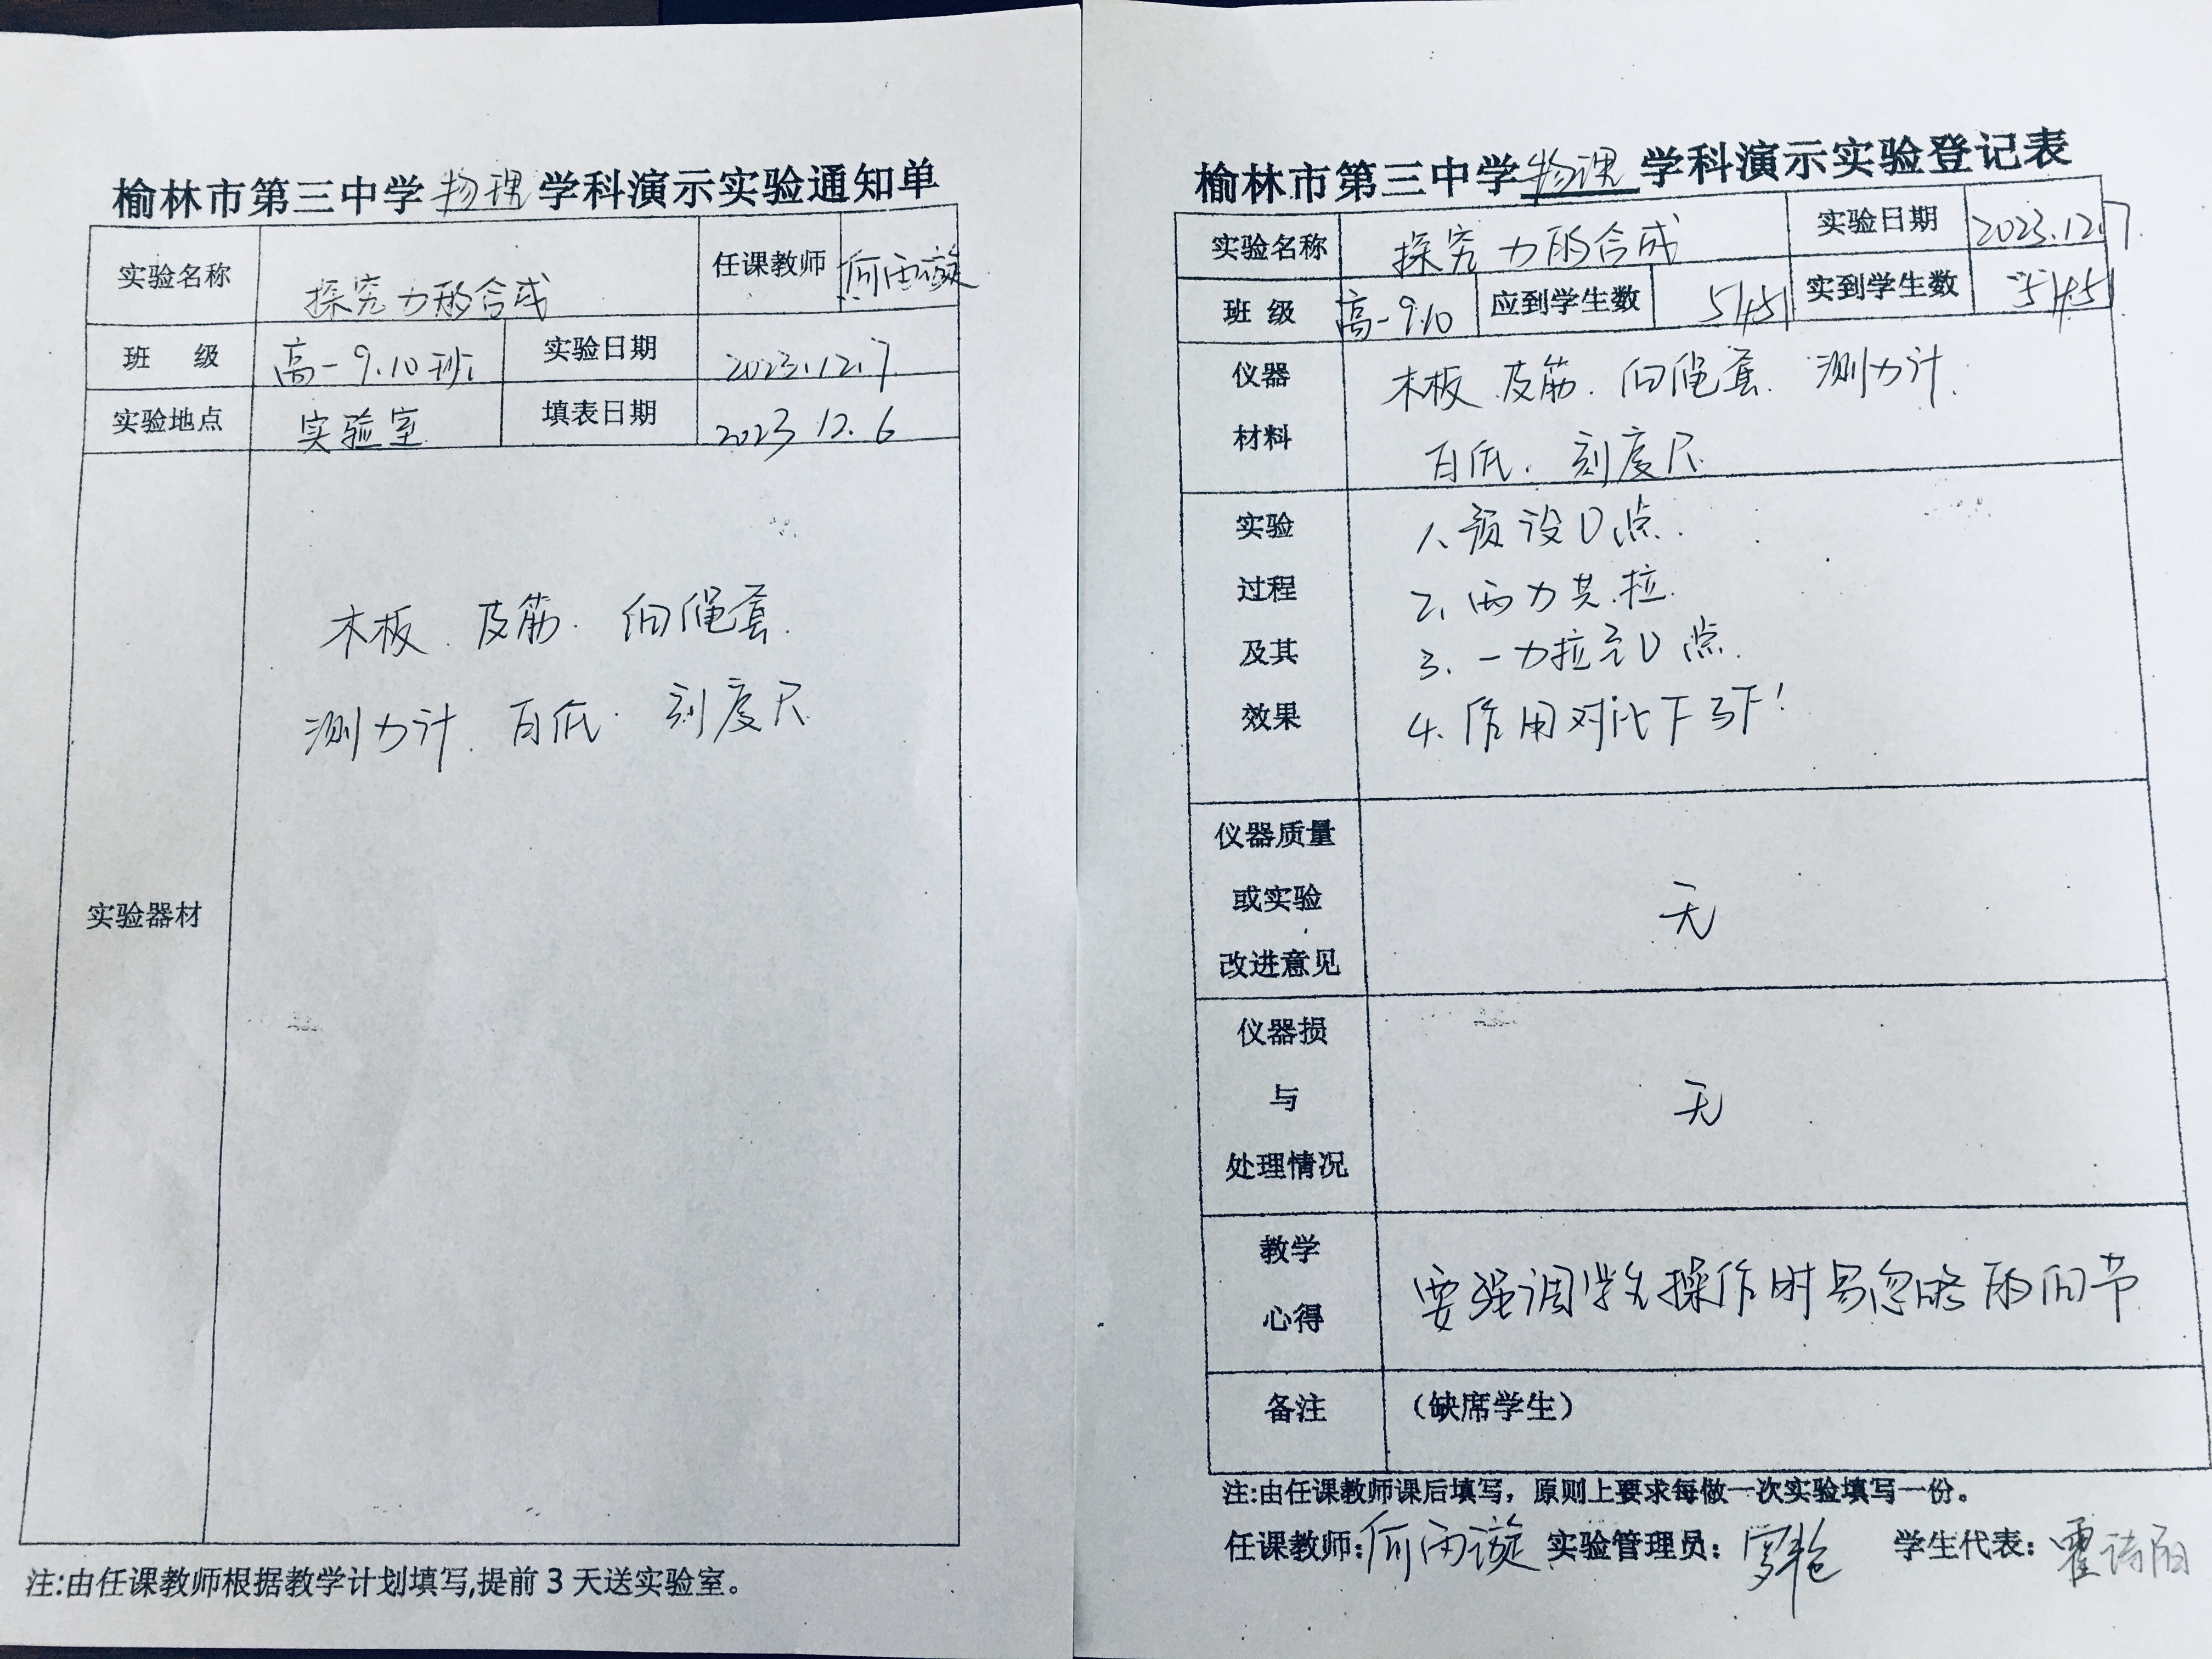 榆林市第三中学物理学科演示实验通知单
实验名称 探究力的合成 任课教师 何雨漩
班 级 高一9.10班 实验日期 2023.12.7
实验地点 实验室 填表日期 2023.12.6
实验器材
木板 皮筋 细绳套
测力计 白纸 刻度尺
注:由任课教师根据教学计划填写,提前3天送实验室。
榆林市第三中学物理学科演示实验登记表
实验名称 探究力的合成 实验日期 2023.12.7
班 级 高一9.10 应到学生数 51/51 实到学生数 51/51
仪器
材料
木板 皮筋 细绳套 测力计
白纸 刻度尺
实验
过程
及其
效果
1、预设O点.
2、两力共拉
3. 一力拉至O点
4. 作图对比F与F'
仪器质量
或实验
改进意见
无
仪器损
与
处理情况
无
教学
心得
要强调学生操作时易忽略的细节
备注 (缺席学生)
注:由任课教师课后填写，原则上要求每做一次实验填写一份。
任课教师:何雨漩 实验管理员: 学生代表:霍诗雨